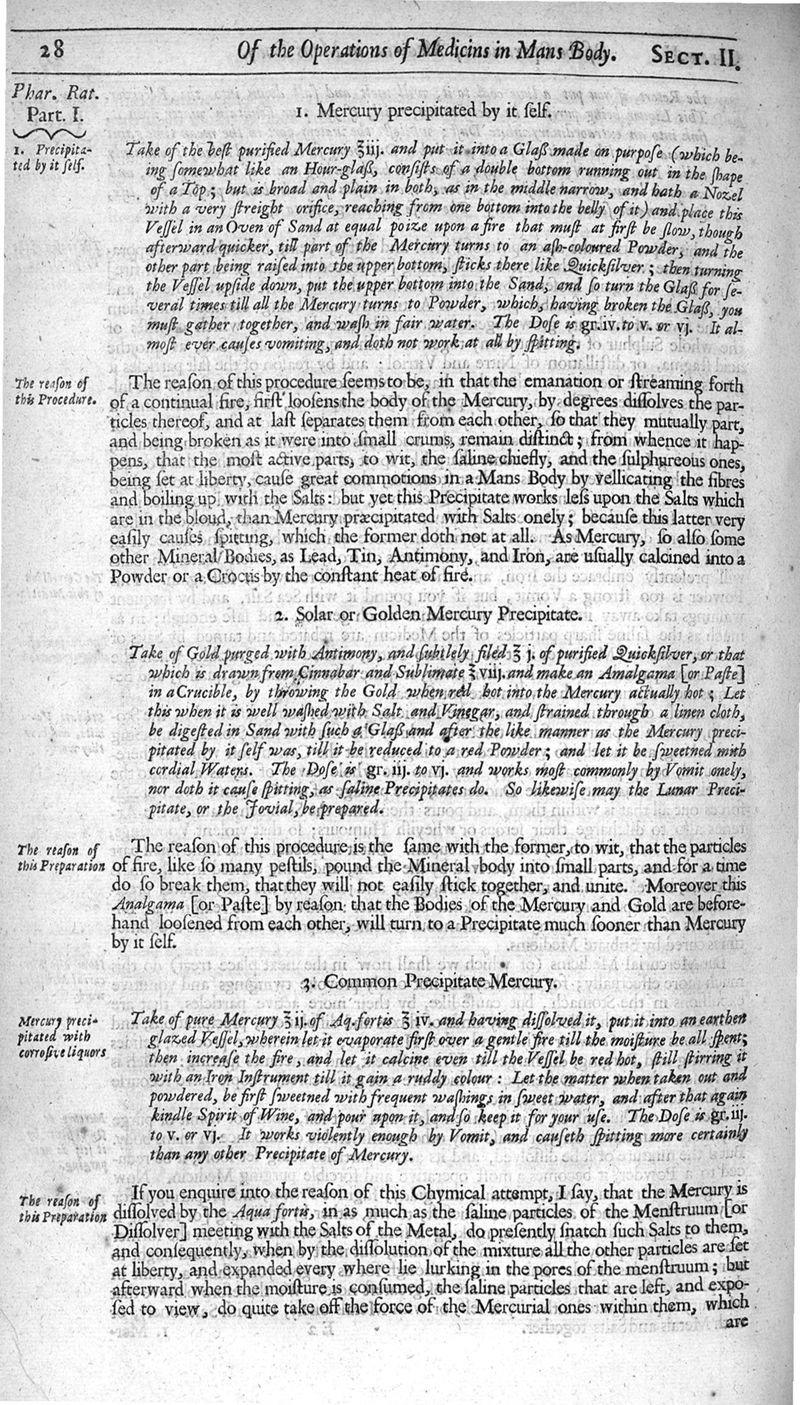 28 Of the Operations of Medicins in Mans Body. SECT. II.
Phar. Rat.
Part. I.
1. Mercury precipitated by it ſelf.
1. Precipita-
ted by it ſelf.
Take of the beſt purified Mercury ℥iij. and put it into a Glaß made on purpoſe (which be-
ing ſomewhat like an Hour-glaß, conſiſts of a double bottom running out in the ſhape
of a Top; but is broad and plain in both, as in the middle narrow, and hath a Nozel
with a very ſtreight orifice, reaching from one bottom into the belly of it) and place this
Veſſel in an Oven of Sand at equal poize upon a fire that muſt at firſt be ſlow, though
afterward quicker, till part of the Mercury turns to an aſh-coloured Powder, and the
other part being raiſed into the upper bottom, ſticks there like Quickſilver; then turning
the Veſſel upſide down, put the upper bottom into the Sand, and ſo turn the Glaß for ſe-
veral times till all the Mercury turns to Powder, which, having broken the Glaß, you
muſt gather together, and waſh in fair water. The Doſe is gr.iv. to v. or vj. It al-
moſt ever cauſes vomiting, and doth not work at all by ſpitting.
The reaſon of
this Procedure.
The reaſon of this procedure ſeems to be, in that the emanation or ſtreaming forth
of a continual fire, firſt looſens the body of the Mercury, by degrees diſſolves the par-
ticles thereof, and at laſt ſeparates them from each other, ſo that they mutually part,
and being broken as it were into ſmall crums, remain diſtinct; from whence it hap-
pens, that the moſt active parts, to wit, the ſaline chiefly, and the ſulphureous ones,
being ſet at liberty, cauſe great commotions in a Mans Body by vellicating the fibres
and boiling up with the Salts: but yet this Precipitate works leſs upon the Salts which
are in the bloud, than Mercury præcipitated with Salts onely; becauſe this latter very
eaſily cauſes ſpitting, which the former doth not at all. As Mercury, ſo alſo ſome
other Mineral Bodies, as Lead, Tin, Antimony, and Iron, are uſually calcined into a
Powder or a Crocus by the conſtant heat of fire.
2. Solar or Golden Mercury Precipitate.
Take of Gold purged with Antimony, and ſubtilely filed ℥ j. of purified Quickſilver, or that
which is drawn from Cinnabar and Sublimate ℥ viij. and make an Amalgama [or Paſte]
in a Crucible, by throwing the Gold when red hot into the Mercury actually hot; Let
this when it is well waſhed with Salt and Vinegar, and ſtrained through a linen cloth,
be digeſted in Sand with ſuch a Glaß and after the like manner as the Mercury preci-
pitated by it ſelf was, till it be reduced to a red Powder; and let it be ſweetned with
cordial Waters. The Doſe is gr. iij. to vj. and works moſt commonly by Vomit onely,
nor doth it cauſe ſpitting, as ſaline Precipitates do. So likewiſe may the Lunar Preci-
pitate, or the Jovial, be prepared.
The reaſon of
this Preparation
The reaſon of this procedure is the ſame with the former, to wit, that the particles
of fire, like ſo many peſtils, pound the Mineral body into ſmall parts, and for a time
do ſo break them, that they will not eaſily ſtick together, and unite. Moreover this
Analgama [or Paſte] by reaſon that the Bodies of the Mercury and Gold are before-
hand looſened from each other, will turn to a Precipitate much ſooner than Mercury
by it ſelf.
3. Common Precipitate Mercury.
Mercury preci-
pitated with
corroſive liquors
Take of pure Mercury ℥ ij. of Aq. fortis ℥ iv. and having diſſolved it, put it into an earthen
glazed Veſſel, wherein let it evaporate firſt over a gentle fire till the moiſture be all ſpent;
then increaſe the fire, and let it calcine even till the Veſſel be red hot, ſtill ſtirring it
with an Iron Inſtrument till it gain a ruddy colour: Let the matter when taken out and
powdered, be firſt ſweetned with frequent waſhings in ſweet water, and after that again
kindle Spirit of Wine, and pour upon it, and ſo keep it for your uſe. The Doſe is gr.iij.
to v. or vj. It works violently enough by Vomit, and cauſeth ſpitting more certainly
than any other Precipitate of Mercury.
The reaſon of
this Preparation
If you enquire into the reaſon of this Chymical attempt, I ſay, that the Mercury is
diſſolved by the Aqua fortis, in as much as the ſaline particles of the Menſtruum [or
Diſſolver] meeting with the Salts of the Metal, do preſently ſnatch ſuch Salts to them,
and conſequently, when by the diſſolution of the mixture all the other particles are ſet
at liberty, and expanded every where lie lurking in the pores of the menſtruum; but
afterward when the moiſture is conſumed, the ſaline particles that are left, and expo-
ſed to view, do quite take off the force of the Mercurial ones within them, which
are